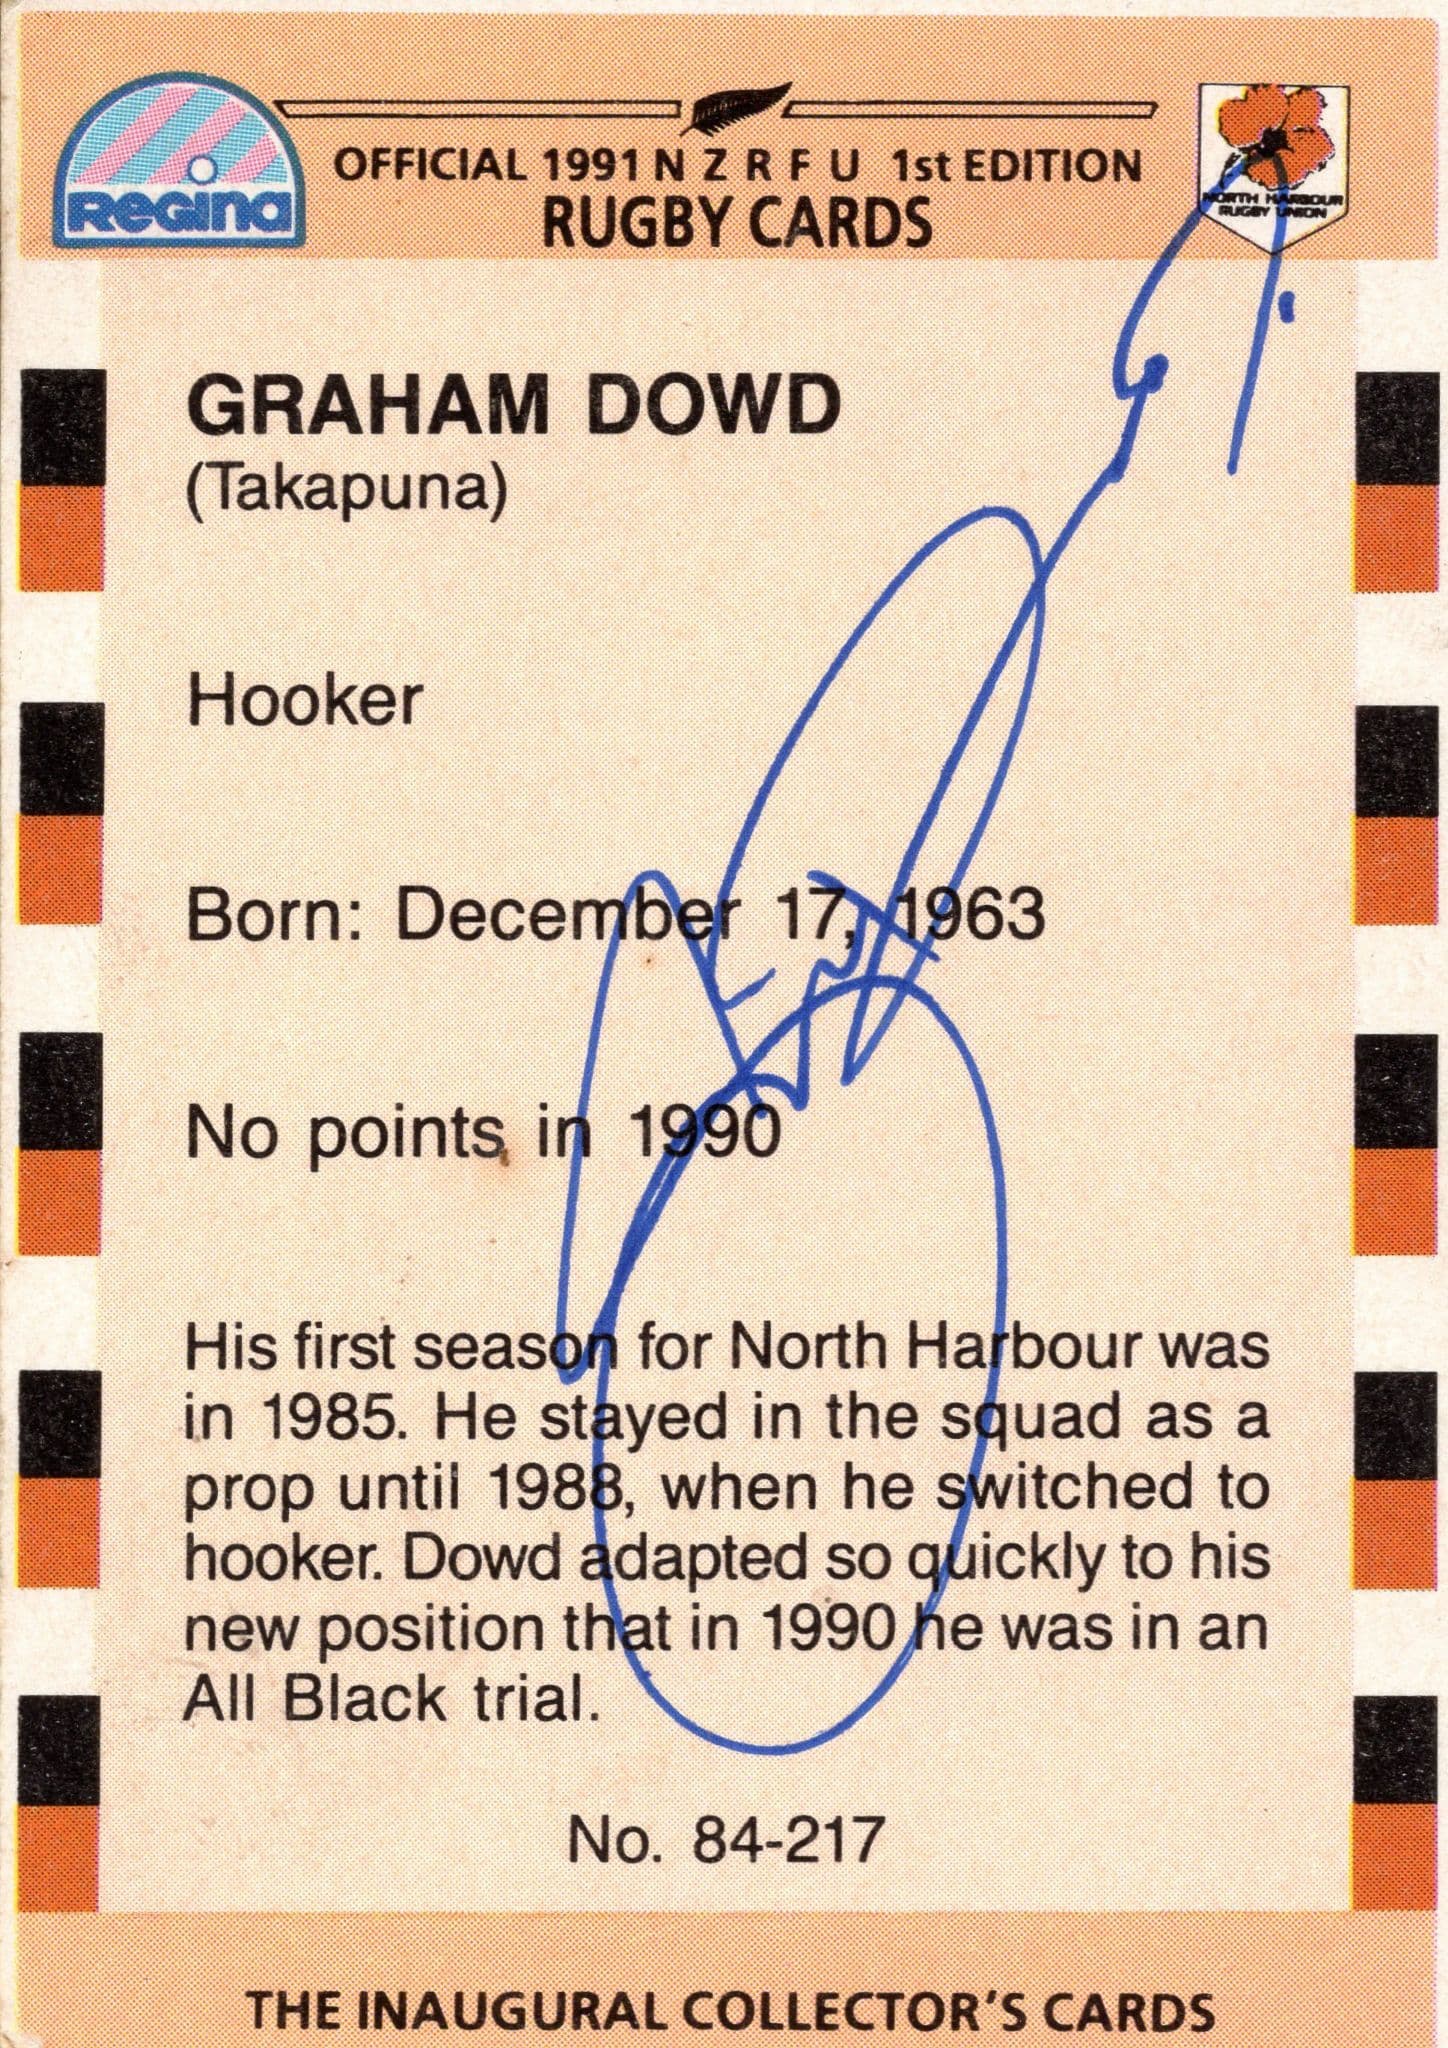 Regina
OFFICIAL 1991 N Z R F U 1st EDITION
RUGBY CARDS
NORTH HARBOUR
RUGBY UNION
GRAHAM DOWD
(Takapuna)
Hooker
Born: December 17, 1963
No points in 1990
His first season for North Harbour was
in 1985. He stayed in the squad as a
prop until 1988, when he switched to
hooker. Dowd adapted so quickly to his
new position that in 1990 he was in an
All Black trial.
No. 84-217
THE INAUGURAL COLLECTOR'S CARDS